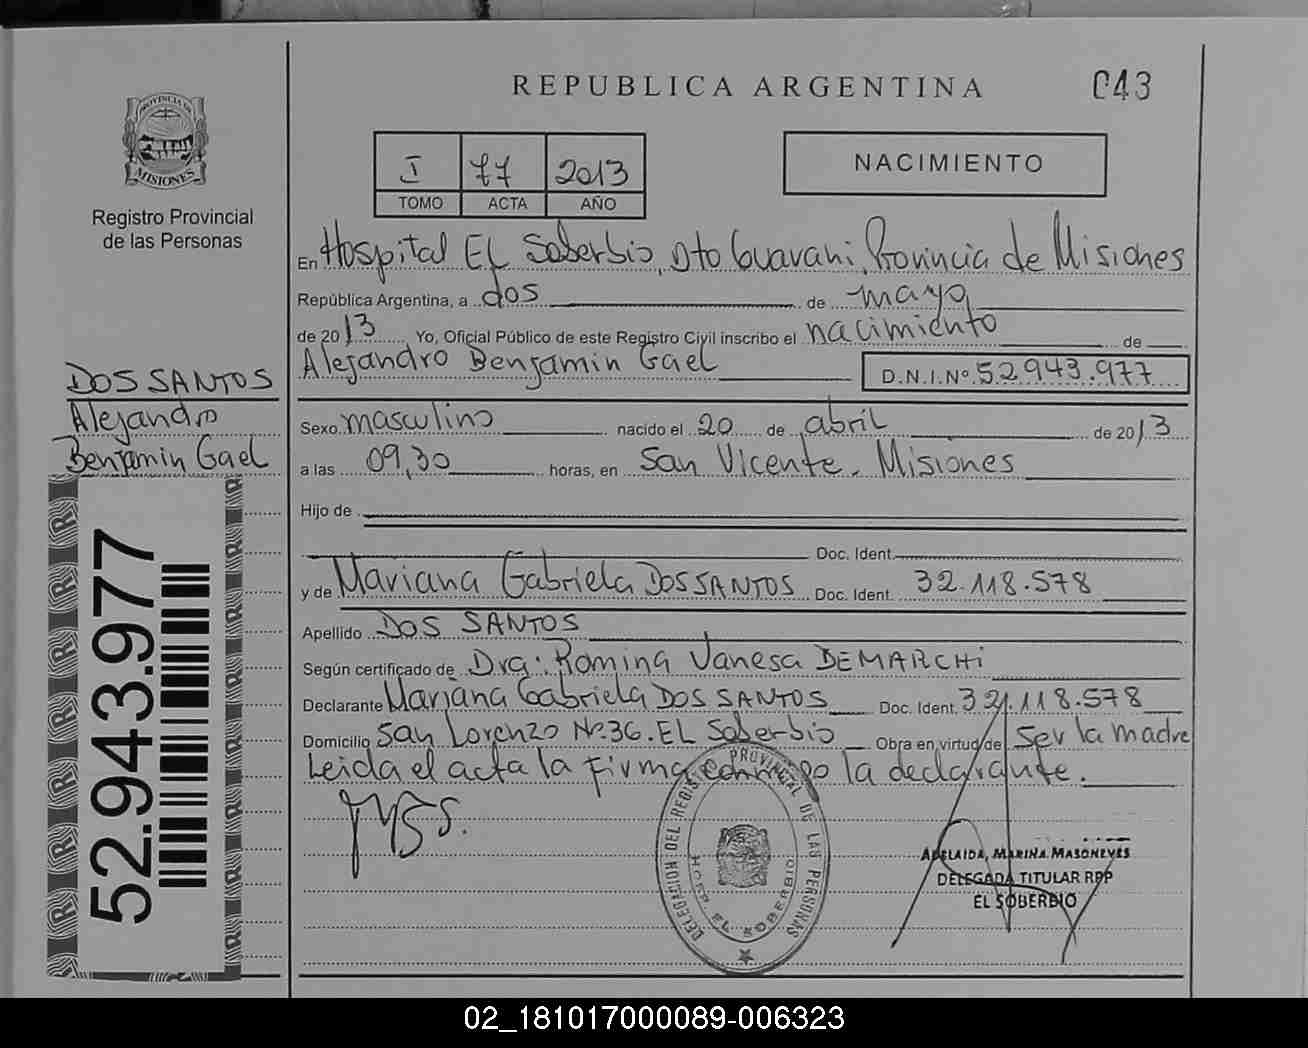 REPUBLICA ARGENTINA
043
PROVINCIA DE
MISIONES
Registro Provincial
de las Personas
I 77 2013
TOMO ACTA AÑO
NACIMIENTO
En Hospital EL Soberbio, Dto Guarani, Provincia de Misiones
República Argentina, a dos de mayo
de 2013 Yo, Oficial Público de este Registro Civil inscribo el nacimiento de
Alejandro Benjamin Gael
D.N.I.Nº 52943.977
DOS SANTOS
Alejandro
Benjamin Gael
Sexo masculino nacido el 20 de abril de 2013
a las 09,30 horas, en San Vicente. Misiones
Hijo de
Doc. Ident.
y de Mariana Gabriela DOS SANTOS Doc. Ident. 32.118.578
Apellido DOS SANTOS
Según certificado de Dra: Romina Vanesa DEMARCHi
Declarante Mariana Gabriela DOS SANTOS Doc. Ident. 32.118.578
Domicilio San Lorenzo Nº36. EL Soberbio Obra en virtud de Ser la madre
Leida el acta la firma conmigo la declarante.
52.943.977
DELEGACION DEL REGISTRO PROVINCIAL DE LAS PERSONAS
HOSP. EL SOBERBIO
ADELAIDA, MARINA MASONEVES
DELEGADA TITULAR RPP
EL SOBERBIO
02_181017000089-006323